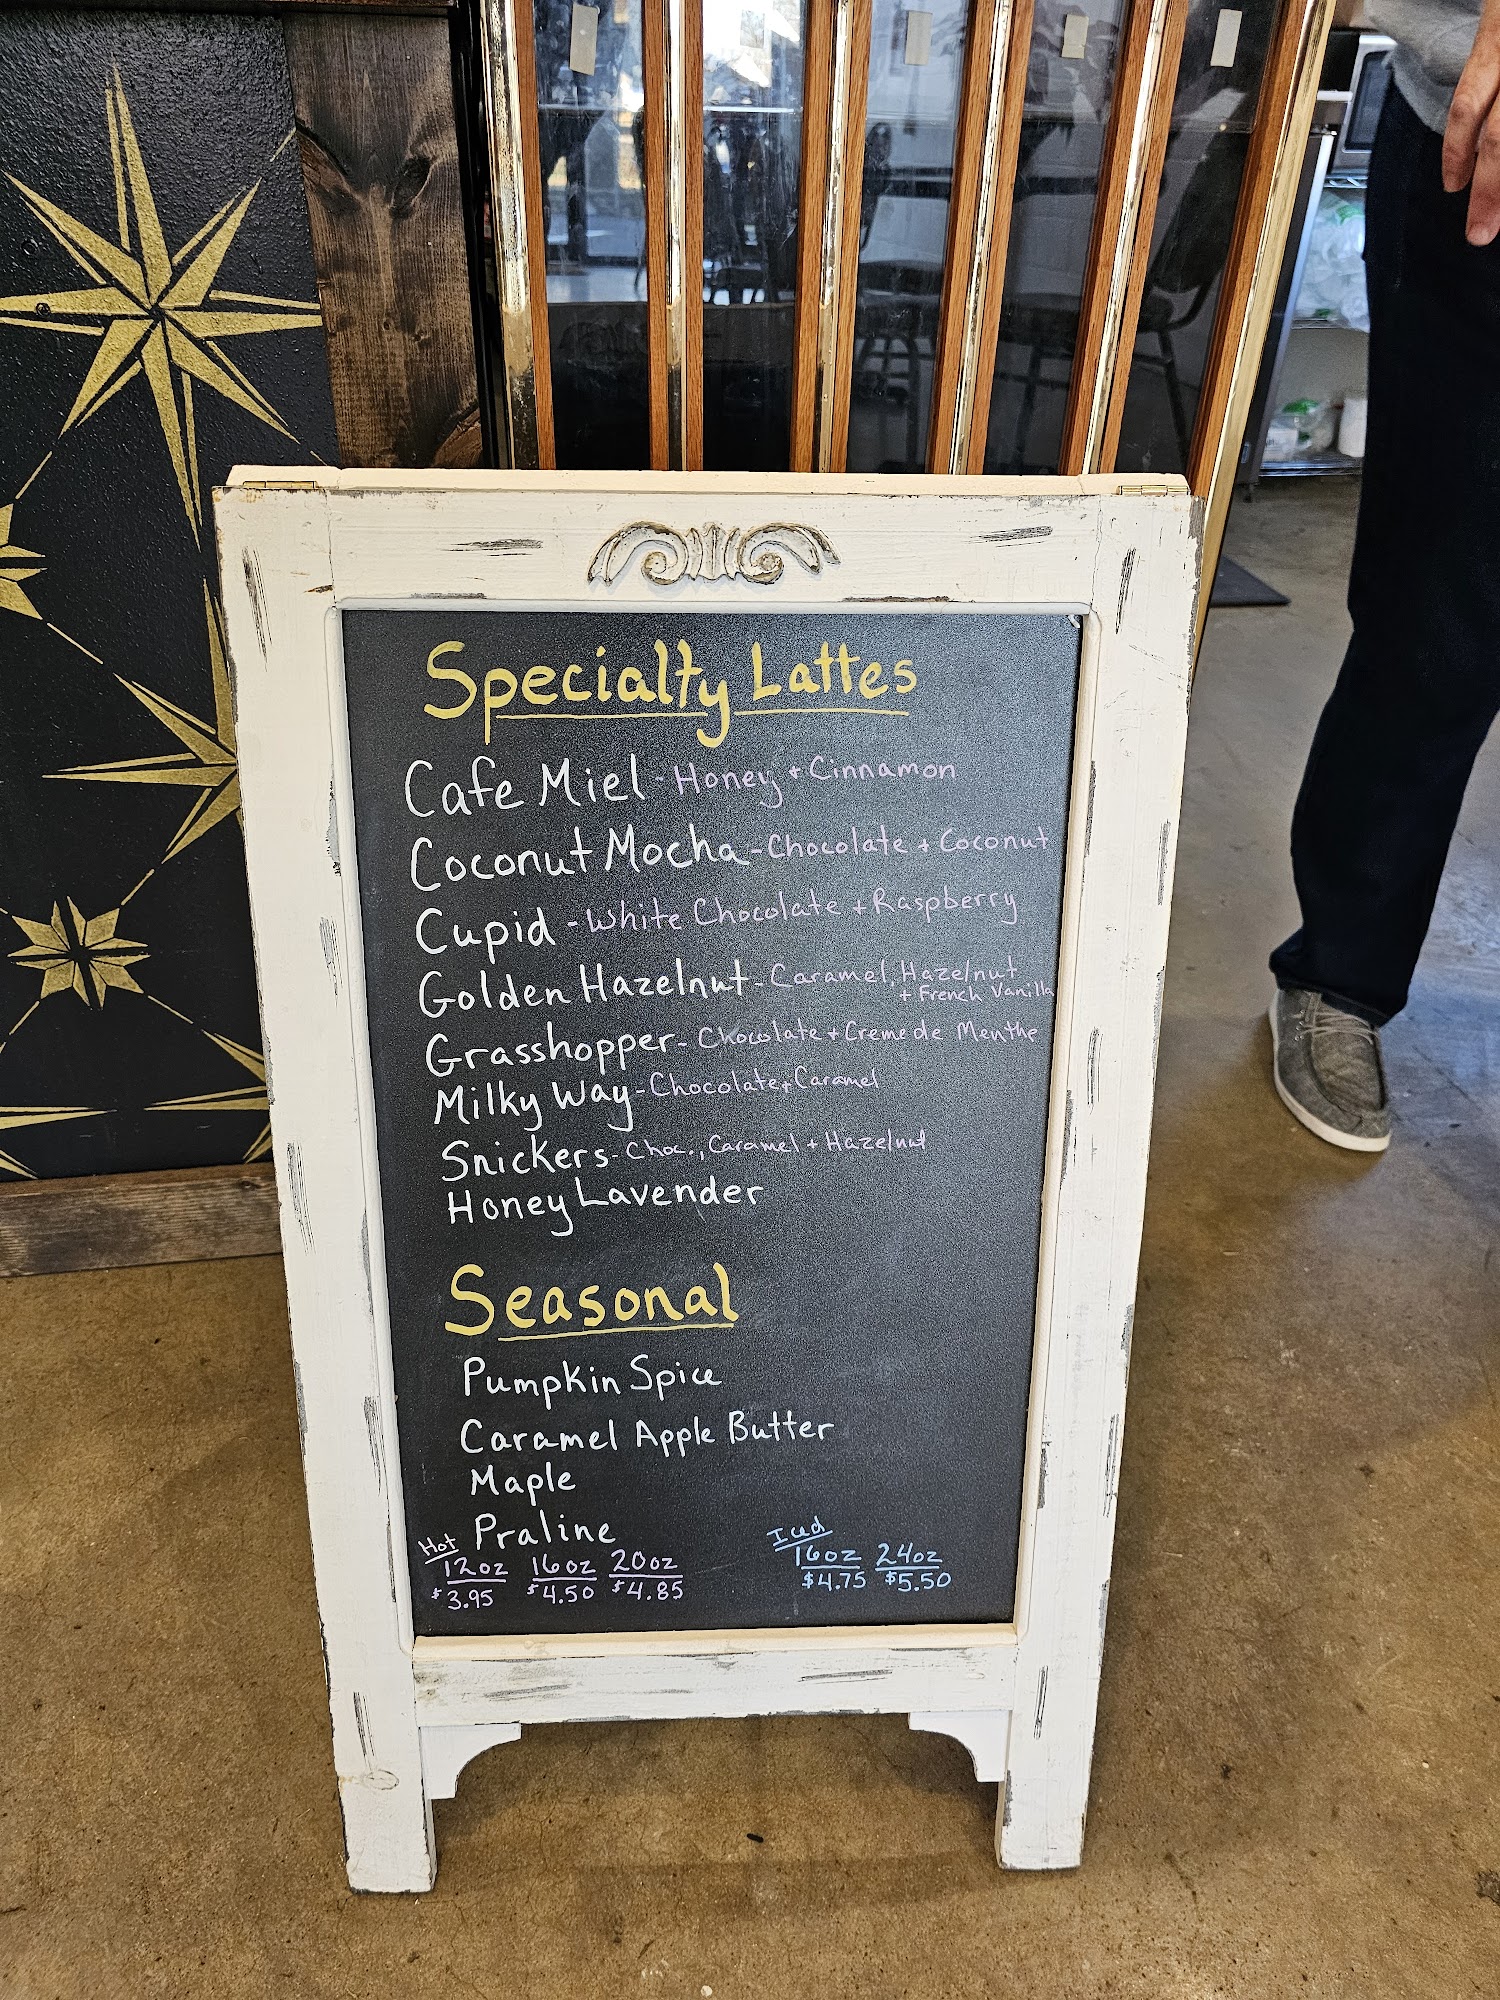 Specialty Lattes
Cafe Miel - Honey + Cinnamon
Coconut Mocha - Chocolate + Coconut
Cupid - White Chocolate + Raspberry
Golden Hazelnut - Caramel, Hazelnut
+ French Vanilla
Grasshopper - Chocolate + Creme de Menthe
Milky Way - Chocolate + Caramel
Snickers - Choc., Caramel + Hazelnut
Honey Lavender
Seasonal
Pumpkin Spice
Caramel Apple Butter
Maple
Praline
Hot
12oz 16oz 20oz
$3.95 $4.50 $4.85
Iced
16oz 24oz
$4.75 $5.50